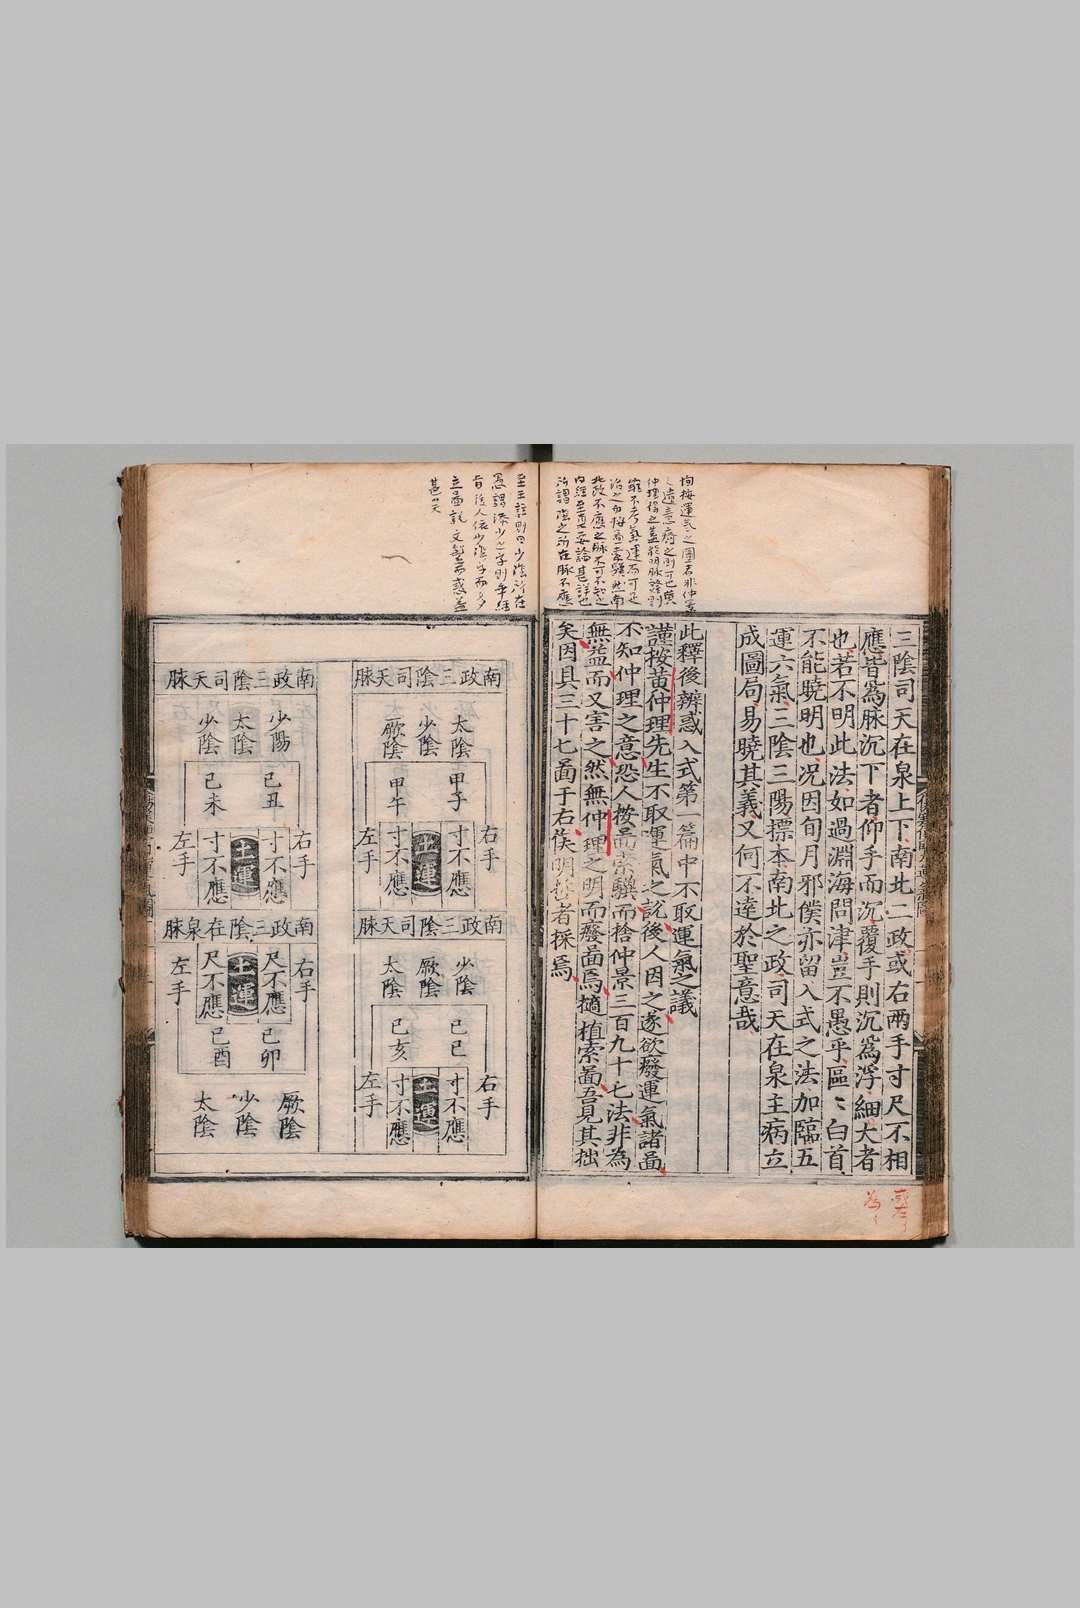 三陰司天在泉上下南北二政或右兩手寸尺不相
應皆為脉沉下者仰手而沉覆手則沉為浮細大者
也若不明此法如過淵海問津豈不愚乎區〻白首
不能曉明也況因旬月邪僕亦留入式之法加臨五
運六氣三陰三陽摽本南北之政司天在泉主病立
成圖局易曉其義又何不達於聖意哉
此釋後辨惑入式第一篇中不取運氣之議
謹按黃仲理先生不取運氣之説後人因之遂欲廢運氣諸啚
不知仲理之意恐人按啚索驥而捨仲景三百九十七法非為
無益而又害之然無仲理之明而廢啚焉擿埴索啚吾見其拙
矣因具三十七啚于右俟明哲者採焉
南政三陰司天脉
太陰
少陰
厥陰
甲子
甲午
右手
寸不應
土運
寸不應
左手
南政三陰司天脉
少陰
厥陰
太陰
己巳
己亥
右手
寸不應
土運
寸不應
左手
南政三陰司天脉
少陽
太陰
少陰
己丑
己未
右手
寸不應
土運
寸不應
左手
南政三陰在泉脉
右手
尺不應
土運
尺不應
左手
己卯
己酉
厥陰
少陰
太陰
北政不應之脉不可不知之
內經至真要論甚詳也
所謂陰之所在脉不應
至王註則曰少陰所在